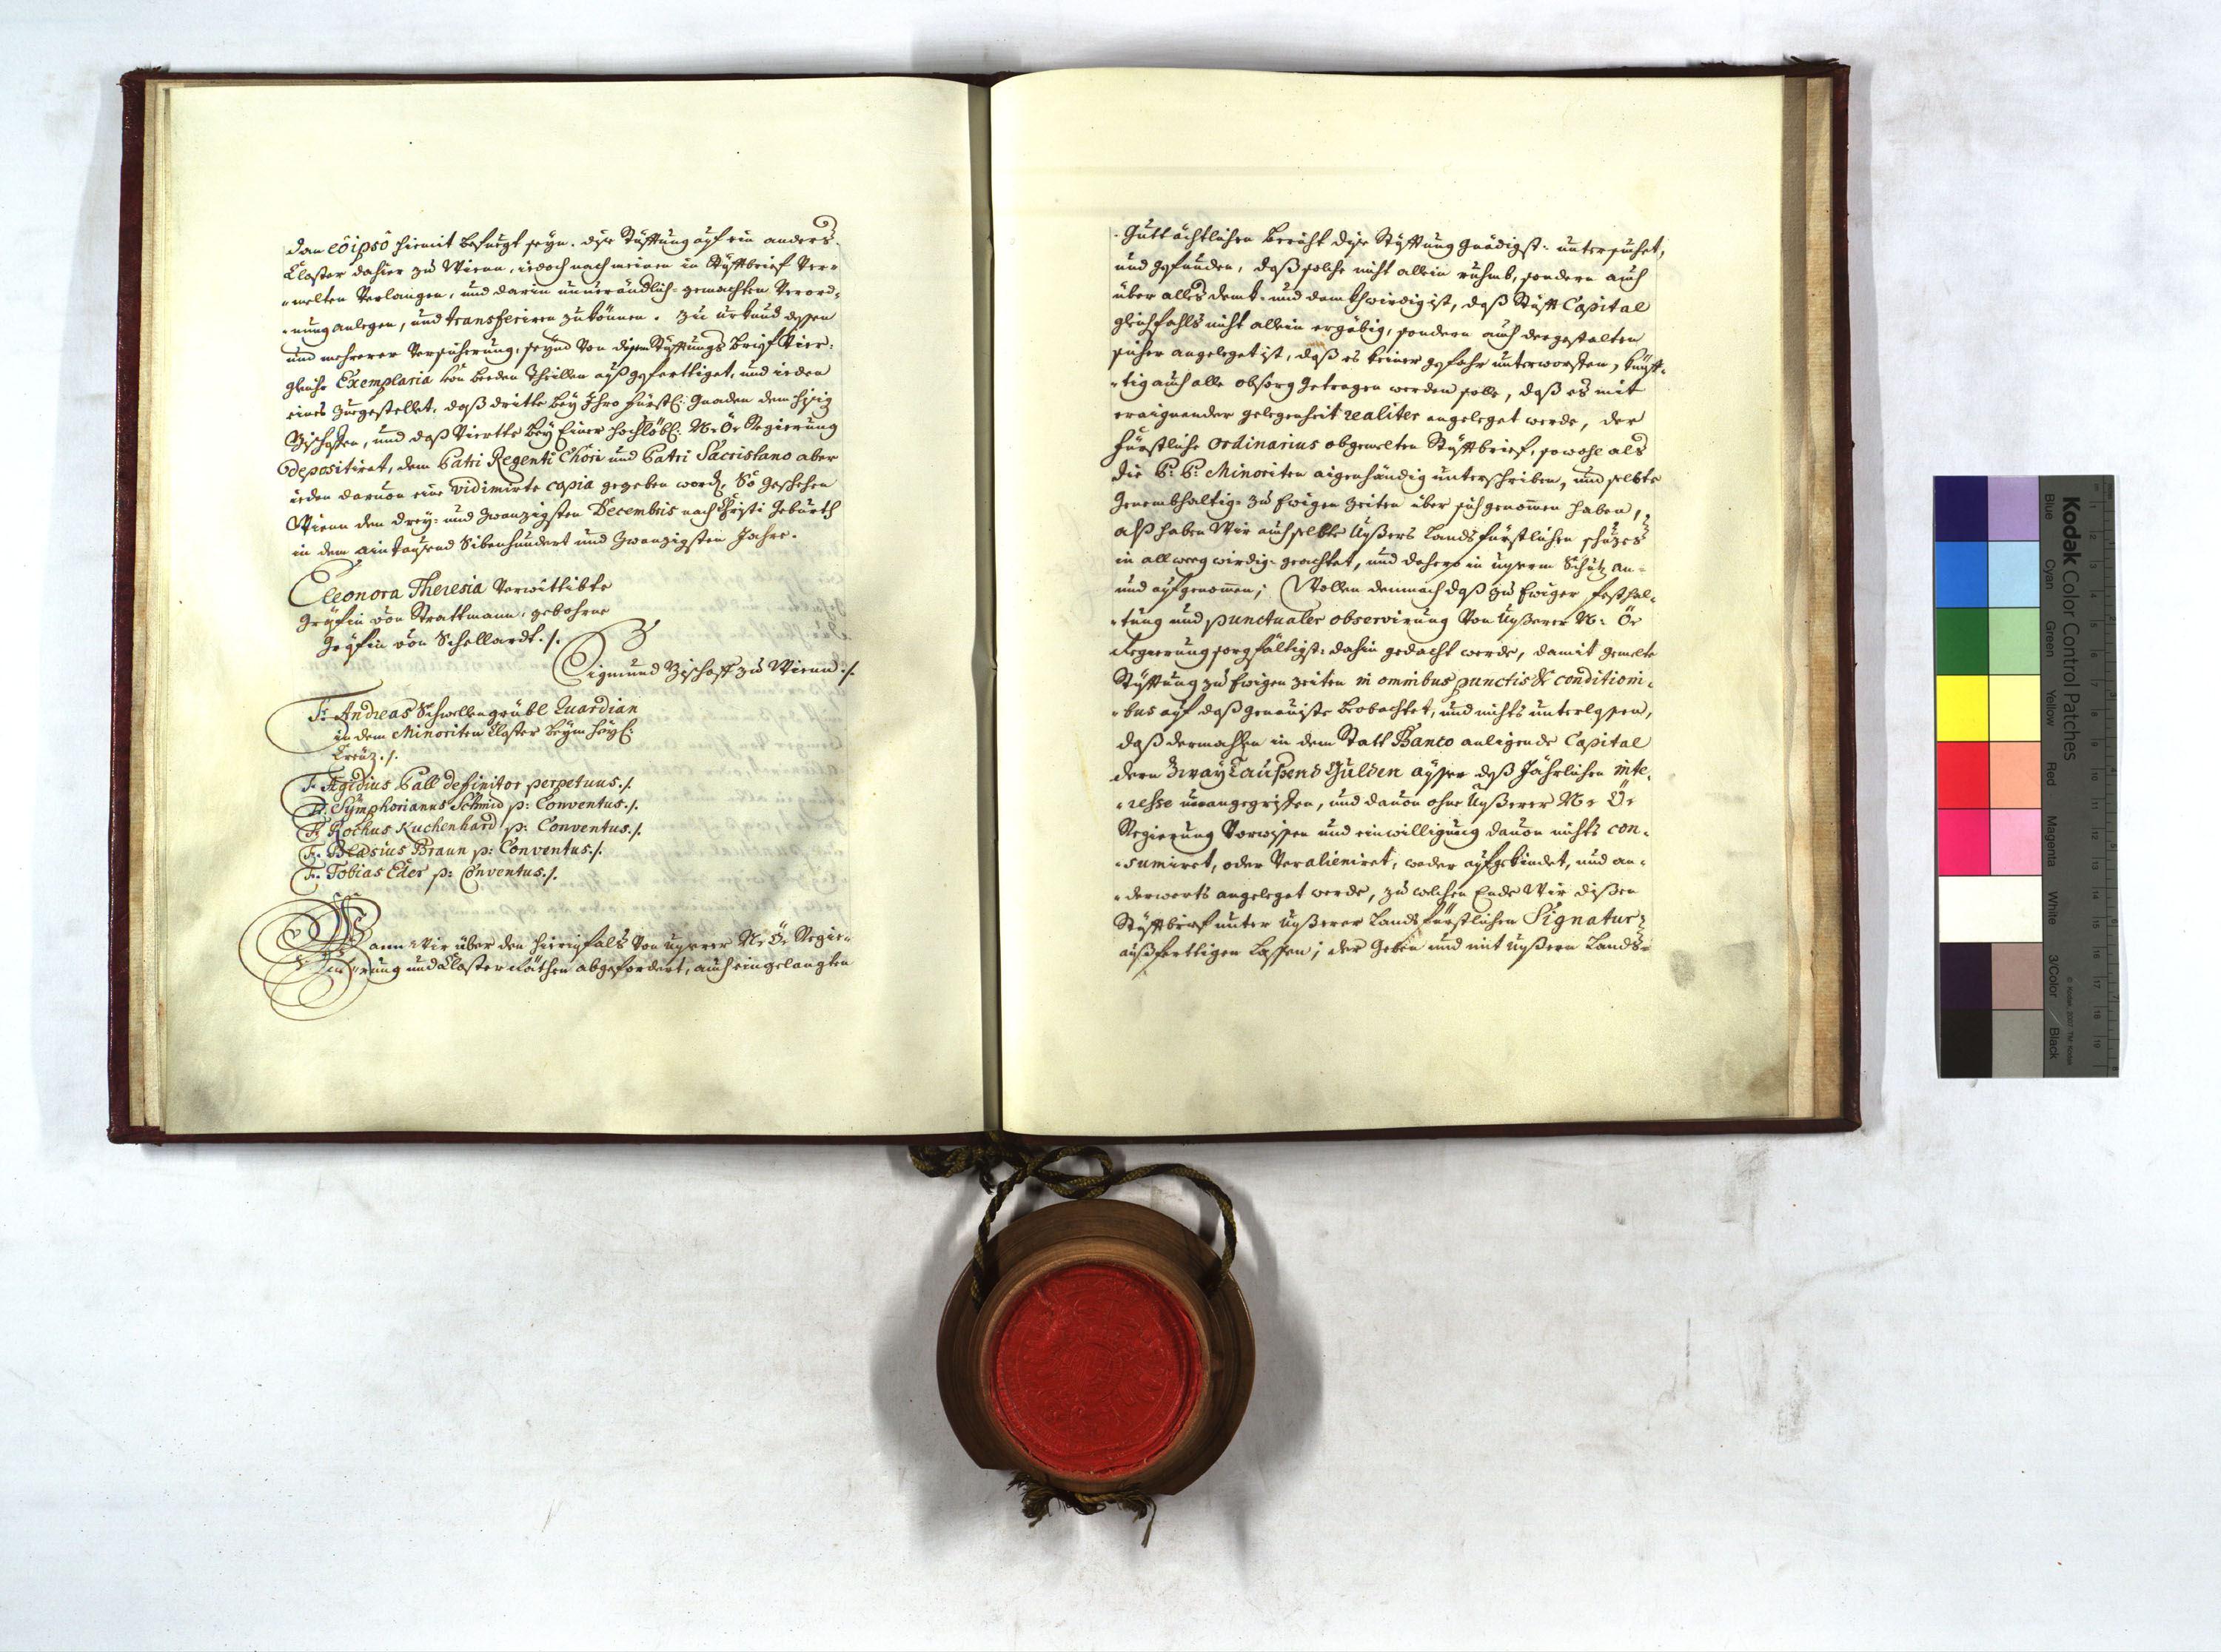 dan eo ipso hiemit befuegt seyn, dise Stüfftung auf ein anders
Closter dahier zu Wienn, iedoch nach meinen in Stüfftbrief Ver-
melten Verlangen, und darin unveründlich-gemachten Verord-
nung anlegen, und transferiren zukönnen. Zu urkund dessen
und mehrerer Versicherung, seynd von disem Stüfftungs Brief Vier-
gleiche Exemplaria von beeden Theillen außgeferttiget, und ieden
eines zuegestellet, daß dritte bey Ihro Fürstl: Gnaden dem hisig
Bischoffen, und daß Viertte bey Einer Hochlöbl: N: Ö: Regierung
depositiret, dem Patri Regenti Chori und Patri Sacristano aber
ieden daruon eine vidimirte copia gegeben word, So geschehen
Wienn den drey- und zwanzigsten Decembris nach Christi Geburth
in dem ain tausend Sibenhundert und zwanzigsten Jahre.
Eleonora Theresia Verwittibte
Gräfin von Strattmann, gebohrne
Gräfin von Schellardt ./.
Sigmund Bischoff zu Wienn ./.
Fr: Andreas Schwellengräbl Quardian
in dem Minoriten Closter beym heyl:
Creuz ./.
F. Ægidius Pall definitor perpetuus ./.
Fr. Symphorianus Schmid p: Conventus ./.
F. Rochus Kuchenhard p: Conventus ./.
F. Blasius Braun p: Conventus ./.
F. Tobias Eder p: Conventus ./.
Wann Wir über den hierinfals von unserer N: Ö: Regie-
rung und Closter Räthen abgefordert, auch eingelangten
Guttächtlichen Bericht dise Stüfftung gnädigst- untersuchet,
und gefunden, daß solche nicht allein ruhmb, sondern auch
über alles denk- und dankwirdig ist, daß Stüfft Capital
gleichfahls nicht allein ergäbig, sondern auch dergestalten
sicher angeleget ist, daß es keiner gefahr unterworffen, künff-
tig auch alle obsorg getragen werden solle, daß es mit
eraignender gelegenheit realiter angeleget werde, der
Fürstliche Ordinarius obgemelten Stüfftbrief, sowohl als
die P: P: Minoriten aigenhändig unterschriben, und selbte
Genembhaltig- zu Ewigen Zeiten über sich genommen haben,
alß haben Wir auch selbte Unßers Landsfürstlichen schuzes
in allweeg wirdig- geachtet, und dahero in unserm Schutz an-
und aufgenommen; Wollen demnach daß zu Ewiger Festhal-
tung und punctualer observirung von Unßerer N: Ö:
Regierung sorgfältigst- dahin gedacht werde, damit gemelte
Stüfftung zu Ewigen Zeiten in omnibus punctis & conditioni-
bus auf daß genauiste beobachtet, und nichts unterlassen,
daß dermahlen in dem Statt Banco anligende Capital
deren Zway Taußend Gulden ausser deß Jährlichen inte-
resse unangegriffen, und dauon ohne Unßerer N: Ö:
Regierung Vorwissen und einwilligung dauon nichts con-
sumiret, oder Veralieniret, weder aufgekindet, und an-
derwerts angeleget werde, zu welchen Ende Wir dißen
Stüfftbrief unter Unßerer Landsfürstlichen Signatur
außferttigen lassen; der Geben und mit Unßern Lands-
Kodak Color Control Patches
Blue Cyan Green Yellow Red Magenta White 3/Color Black